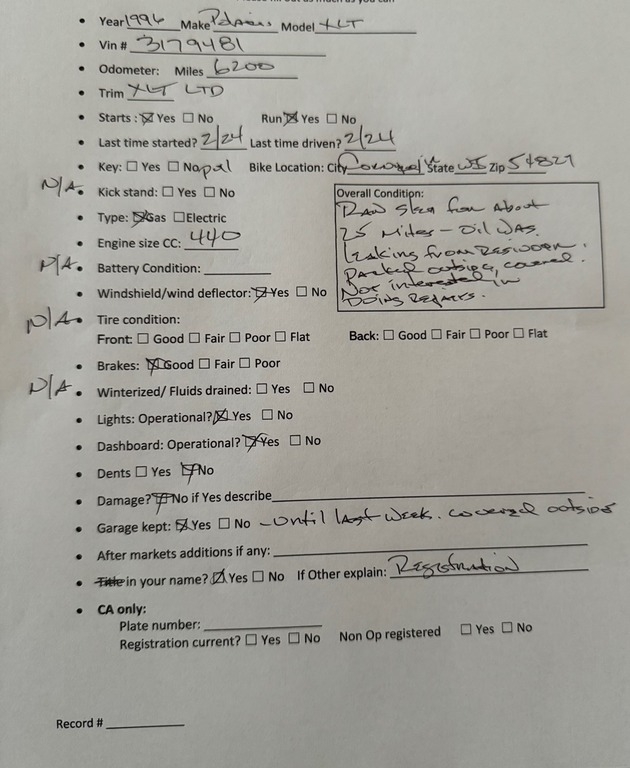 Year 1996 Make Polaris Model XLT
Vin # 3179481
Odometer: Miles 6200
Trim XLT LTD
Starts : ☒ Yes ☐ No Run ☒ Yes ☐ No
Last time started? 2/24 Last time driven? 2/24
Key: ☐ Yes ☐ No Bike Location: City State WI Zip 54827
N/A. Kick stand: ☐ Yes ☐ No
Overall Condition:
Ran sled for about
25 miles - oil was
leaking from
parked outside, covered.
Not interested in
doing repairs.
Type: ☒ Gas ☐ Electric
Engine size CC: 440
N/A. Battery Condition:
Windshield/wind deflector: ☒ Yes ☐ No
N/A. Tire condition:
Front: ☐ Good ☐ Fair ☐ Poor ☐ Flat Back: ☐ Good ☐ Fair ☐ Poor ☐ Flat
Brakes: ☒ Good ☐ Fair ☐ Poor
N/A. Winterized/ Fluids drained: ☐ Yes ☐ No
Lights: Operational? ☒ Yes ☐ No
Dashboard: Operational? ☒ Yes ☐ No
Dents ☐ Yes ☒ No
Damage? ☒ No if Yes describe
Garage kept: ☒ Yes ☐ No - until last week. covered outside
After markets additions if any:
Title in your name? ☒ Yes ☐ No If Other explain: Registration
CA only:
Plate number:
Registration current? ☐ Yes ☐ No Non Op registered ☐ Yes ☐ No
Record #